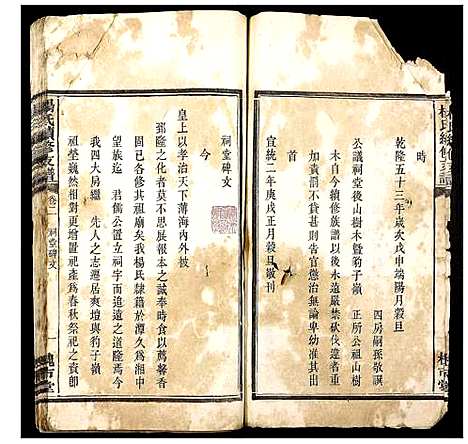 時
乾隆五十三年歲次戊申端陽月穀旦
四房嗣孫敬譔
公議祠堂後山樹木暨豹子嶺正所公祖樹
木自今續修族譜以後永遠嚴禁砍伐違者重
加責罰不貸甚則告官懲治無論卑幼准其出
首
宣統二年庚戌正月穀旦敬刊
楊氏續修支譜
桃市堂
祠堂碑文
今
皇上以孝治天下薄海內外披
郅隆之化者莫不思展報本之誠奉時食以薦馨香
固已各修其祖廟矣我楊氏隸籍於潭久為湘中
望族迨君儒公置立祠宇而追遠之道隆焉今
我四大房繼先人之志遷居爽塏與豹子嶺
祖塋巍然相對更增置祀產為春秋祭祀之資即
楊氏續修支譜
卷二
祠堂碑文
一